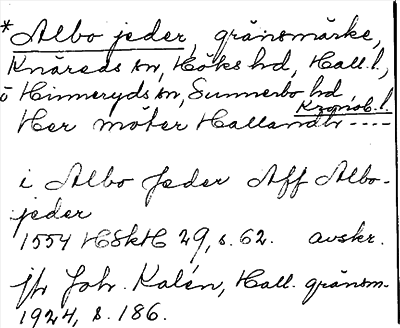 *Albo jeder, gränsmärke,
Knäreds sn, Höks hd, Hall. l.,
ö Hinneryds sn, Sunnerbo hd
Kronob. l.
Her möter Halland ----
i Albo Jeder Aff Albo-
jeder
1554 HSkH 29, s. 62. avskr.
Joh. Kalén, Hall. gränsm.
1924, s. 186.